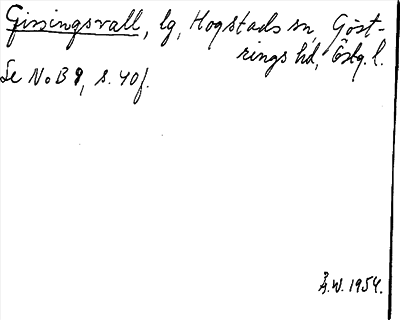 Gissingsvall, lg, Hogstads sn, Göst-
rings hd, Östg. l.
Se NoB 8, s. 40f.
Å.W. 1954.